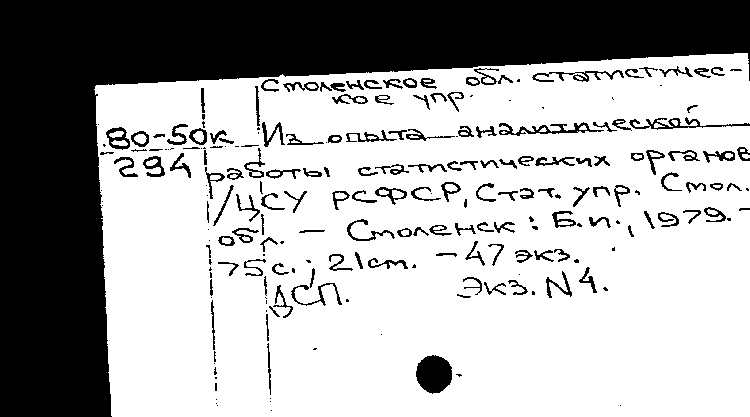 Смоленское обл. статистичес-
кое упр.
80-50к Из опыта аналитической
294 работы статистических органов
/ЦСУ РСФСР, Стат. упр. Смол.
обл. — Смоленск : Б.и., 1979. –
75 с. ; 21 cm. – 47 экз.
ДСП. Экз. N 4.